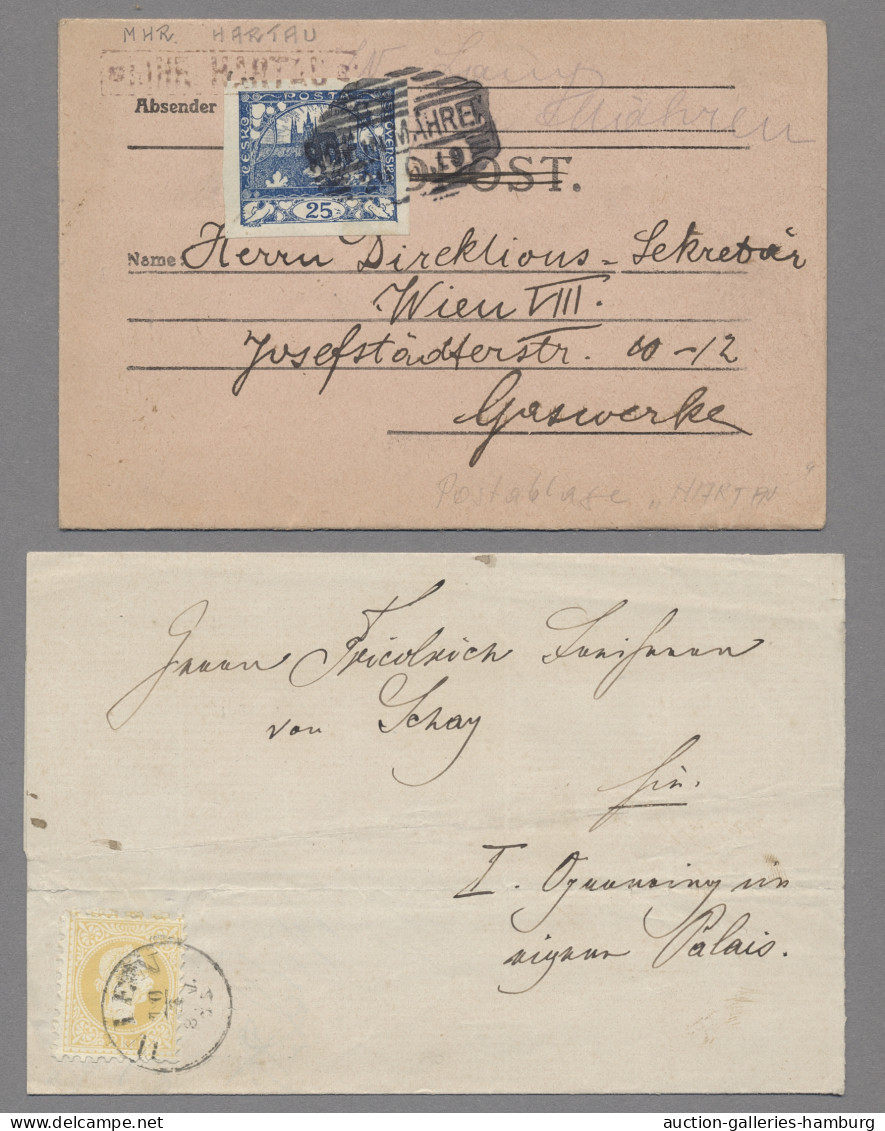 MHR. HARTAU
MHR. HARTAU
Absender
Mähren
POSTA
ČESKO
SLOVENSKÁ
25
MÄHREN
POST.
Name: Herrn Direktions-Sekretär
Wien VIII.
Josefstädterstr. 10-12
Gaswerke
Postablage „HARTAU"
Herrn Friedrich
von Schey
hier.
I. Opernring im
eigenen Palais.
auction-galleries-hamburg.com